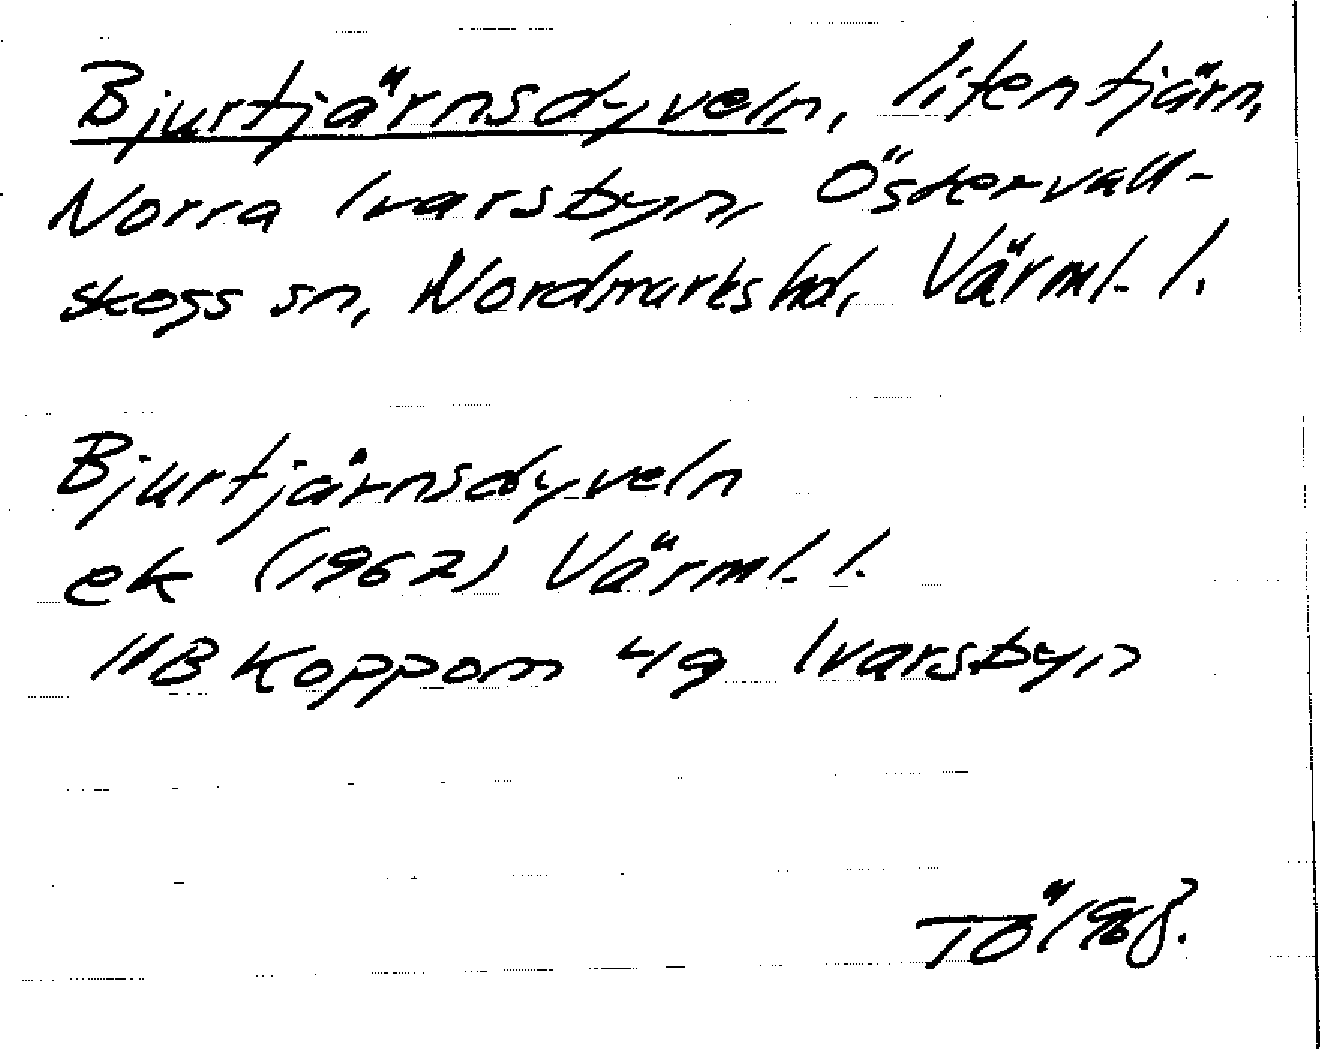 Bjurtjärnsdyveln, liten tjärn,
Norra Ivarsbyn, Östervall-
skogs sn, Nordmarks hd, Värml. l.
Bjurtjärnsdyveln
ek (1967) Värml. l.
11B Koppom 4g Ivarsbyn
TÖ 1968.